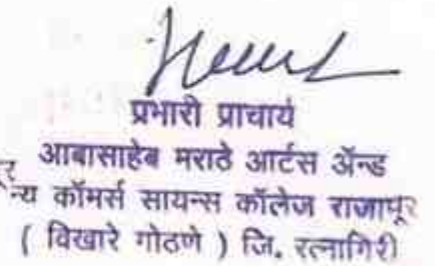 प्रभारी प्राचार्य
आबासाहेब मराठे आर्टस ॲन्ड
न्य कॉमर्स सायन्स कॉलेज राजापूर
( विखारे गोठणे ) जि. रत्नागिरी